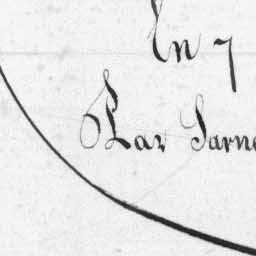 En 7
Par Sarne